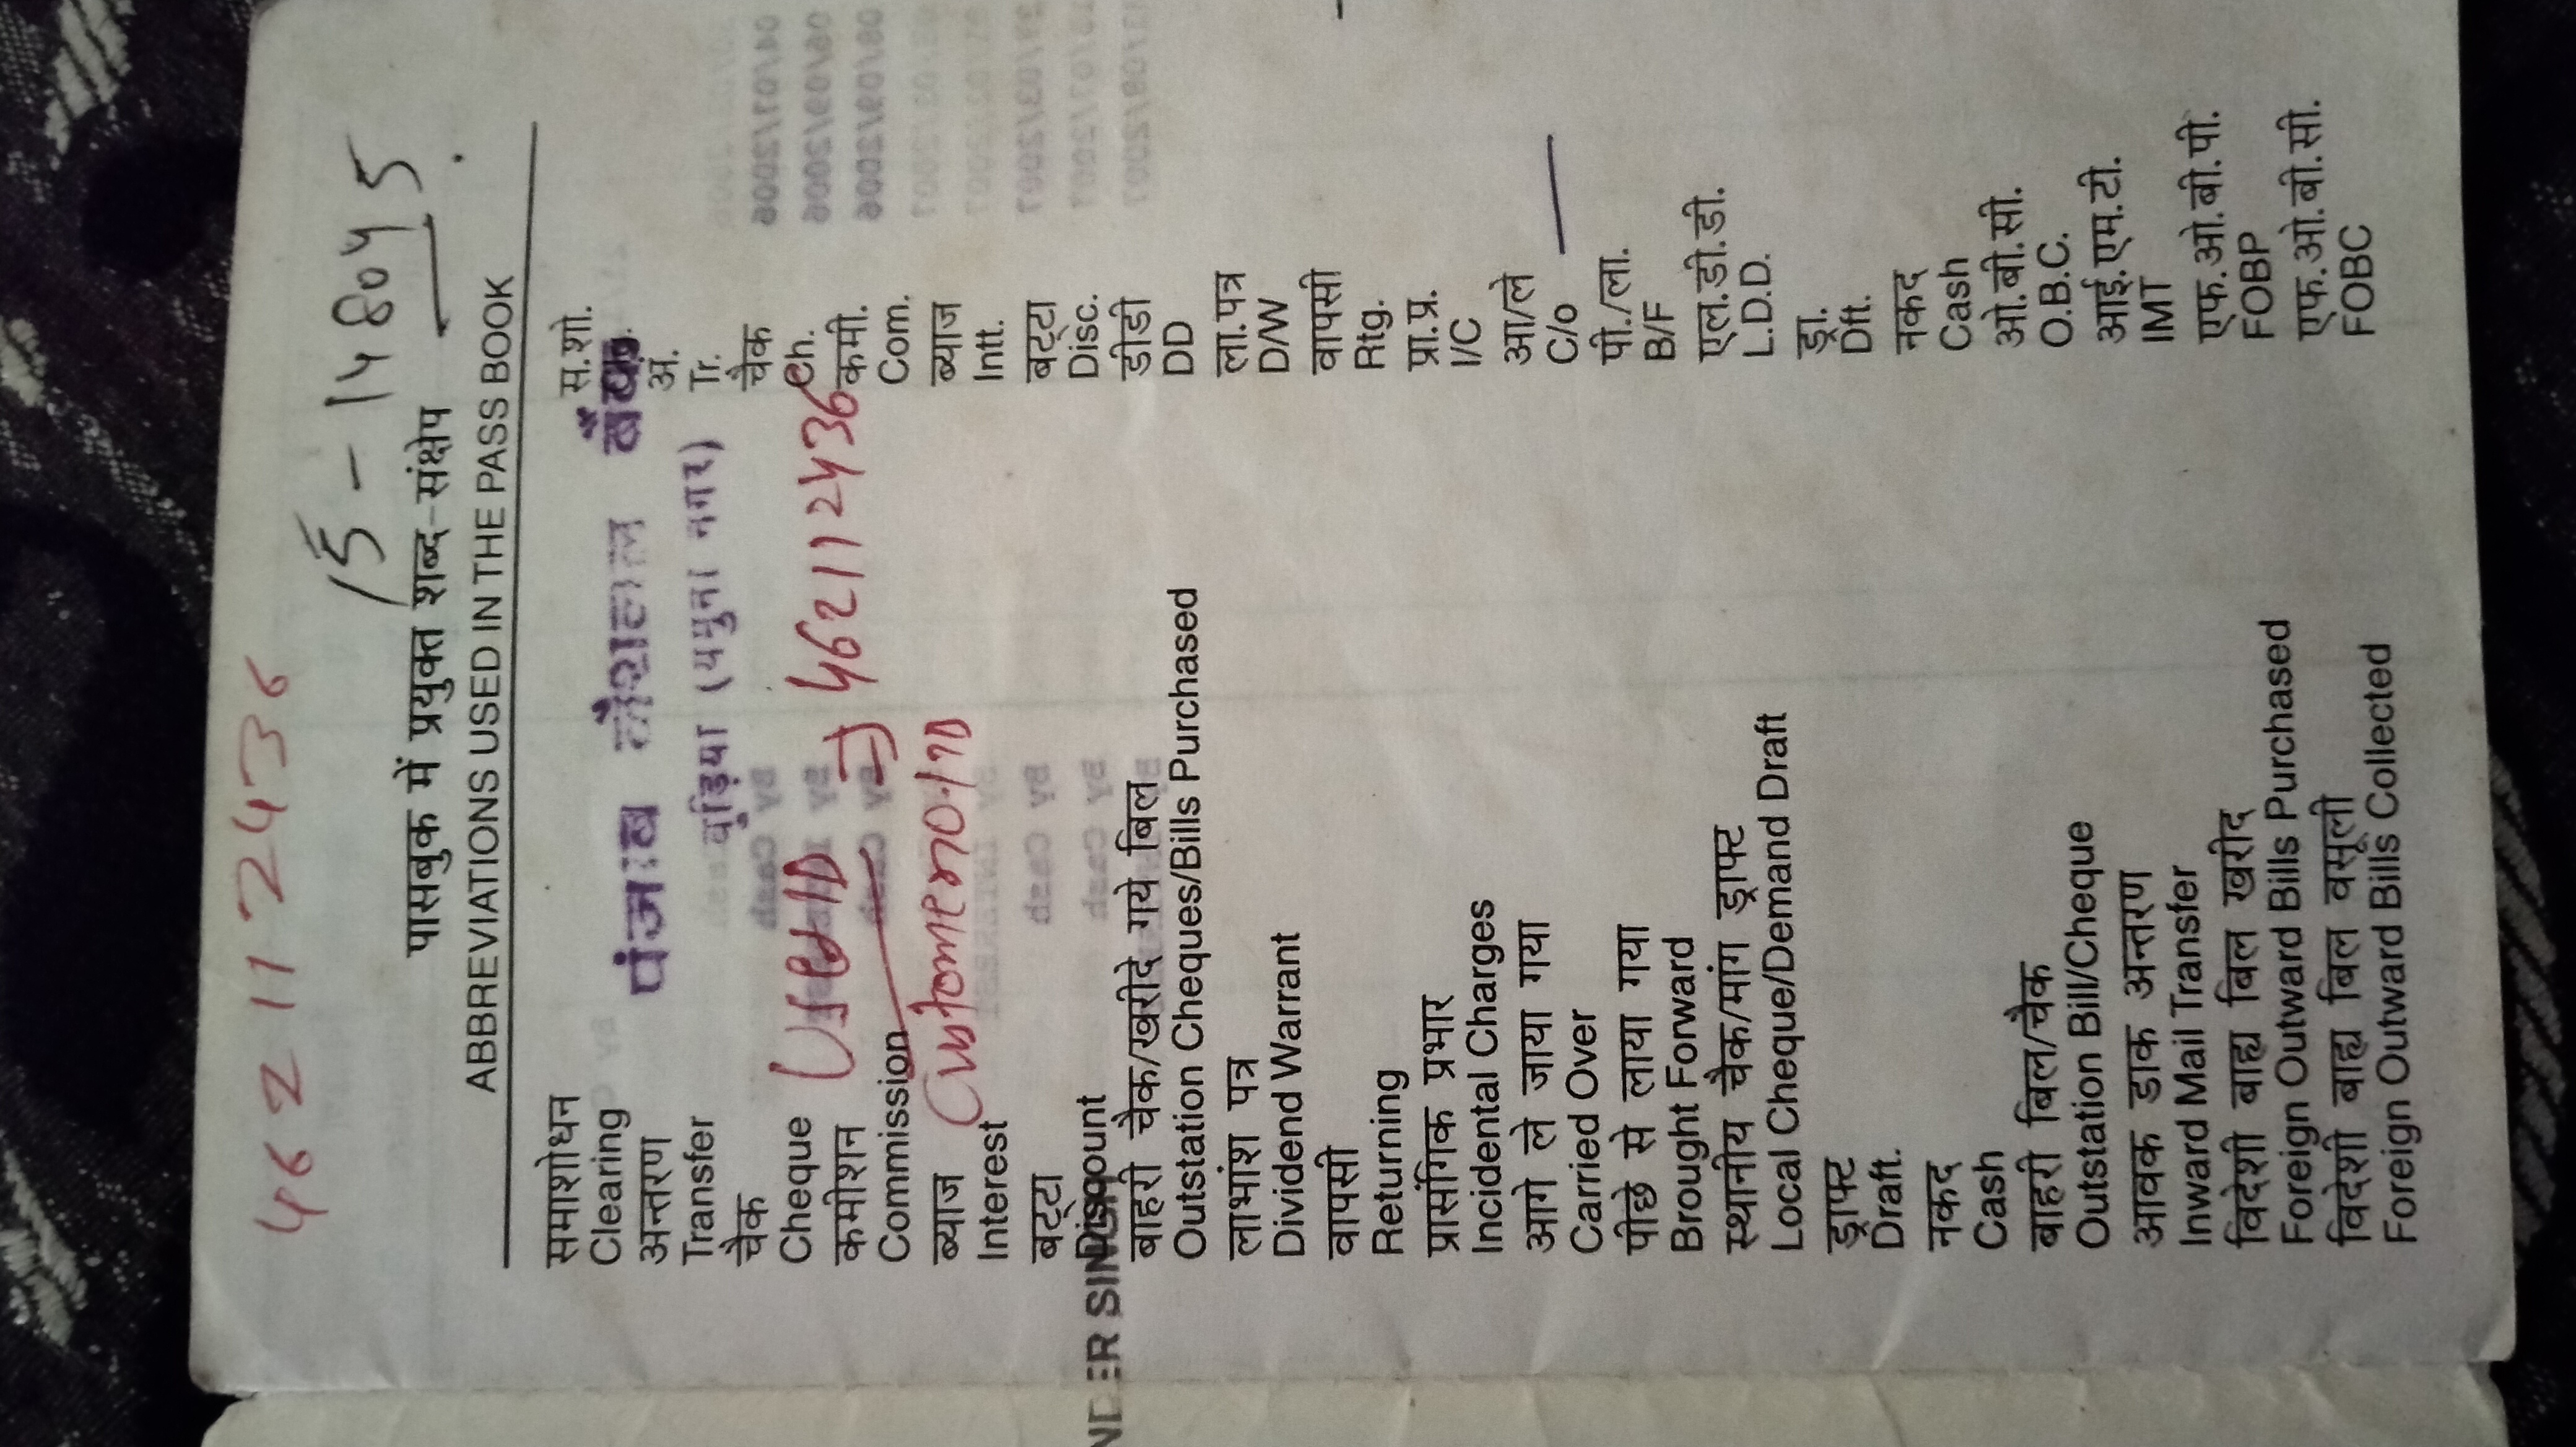 462112436
15-148045
पासबुक में प्रयुक्त शब्द-संक्षेप
ABBREVIATIONS USED IN THE PASS BOOK
समाशोधन स.शो.
Clearing
पंजाब नैशनल बैंक
अन्तरण अ.
Transfer Tr.
बुड़िया (यमुना नगर)
चैक चैक
Cheque Ch.
USER ID 462112436
कमीशन कमी.
Commission Com.
Customer no. / ID
ब्याज ब्याज
Interest Intt.
बट्टा बट्टा
Discount Disc.
NDER SIN
बाहरी चैक/खरीदे गये बिल डीडी
Outstation Cheques/Bills Purchased DD
लाभांश पत्र ला.पत्र
Dividend Warrant D/W
वापसी वापसी
Returning Rtg.
प्रासंगिक प्रभार प्रा.प्र.
Incidental Charges I/C
आगे ले जाया गया आ/ले
Carried Over C/o
पीछे से लाया गया पी./ला.
Brought Forward B/F
स्थानीय चैक/मांग ड्राफ्ट एल.डी.डी.
Local Cheque/Demand Draft L.D.D.
ड्राफ्ट ड्रा.
Draft. Dft.
नकद नकद
Cash Cash
बाहरी बिल/चैक ओ.बी.सी.
Outstation Bill/Cheque O.B.C.
आवक डाक अन्तरण आई.एम.टी.
Inward Mail Transfer IMT
विदेशी बाह्य बिल खरीद एफ.ओ.बी.पी.
Foreign Outward Bills Purchased FOBP
विदेशी बाह्य बिल वसूली एफ.ओ.बी.सी.
Foreign Outward Bills Collected FOBC